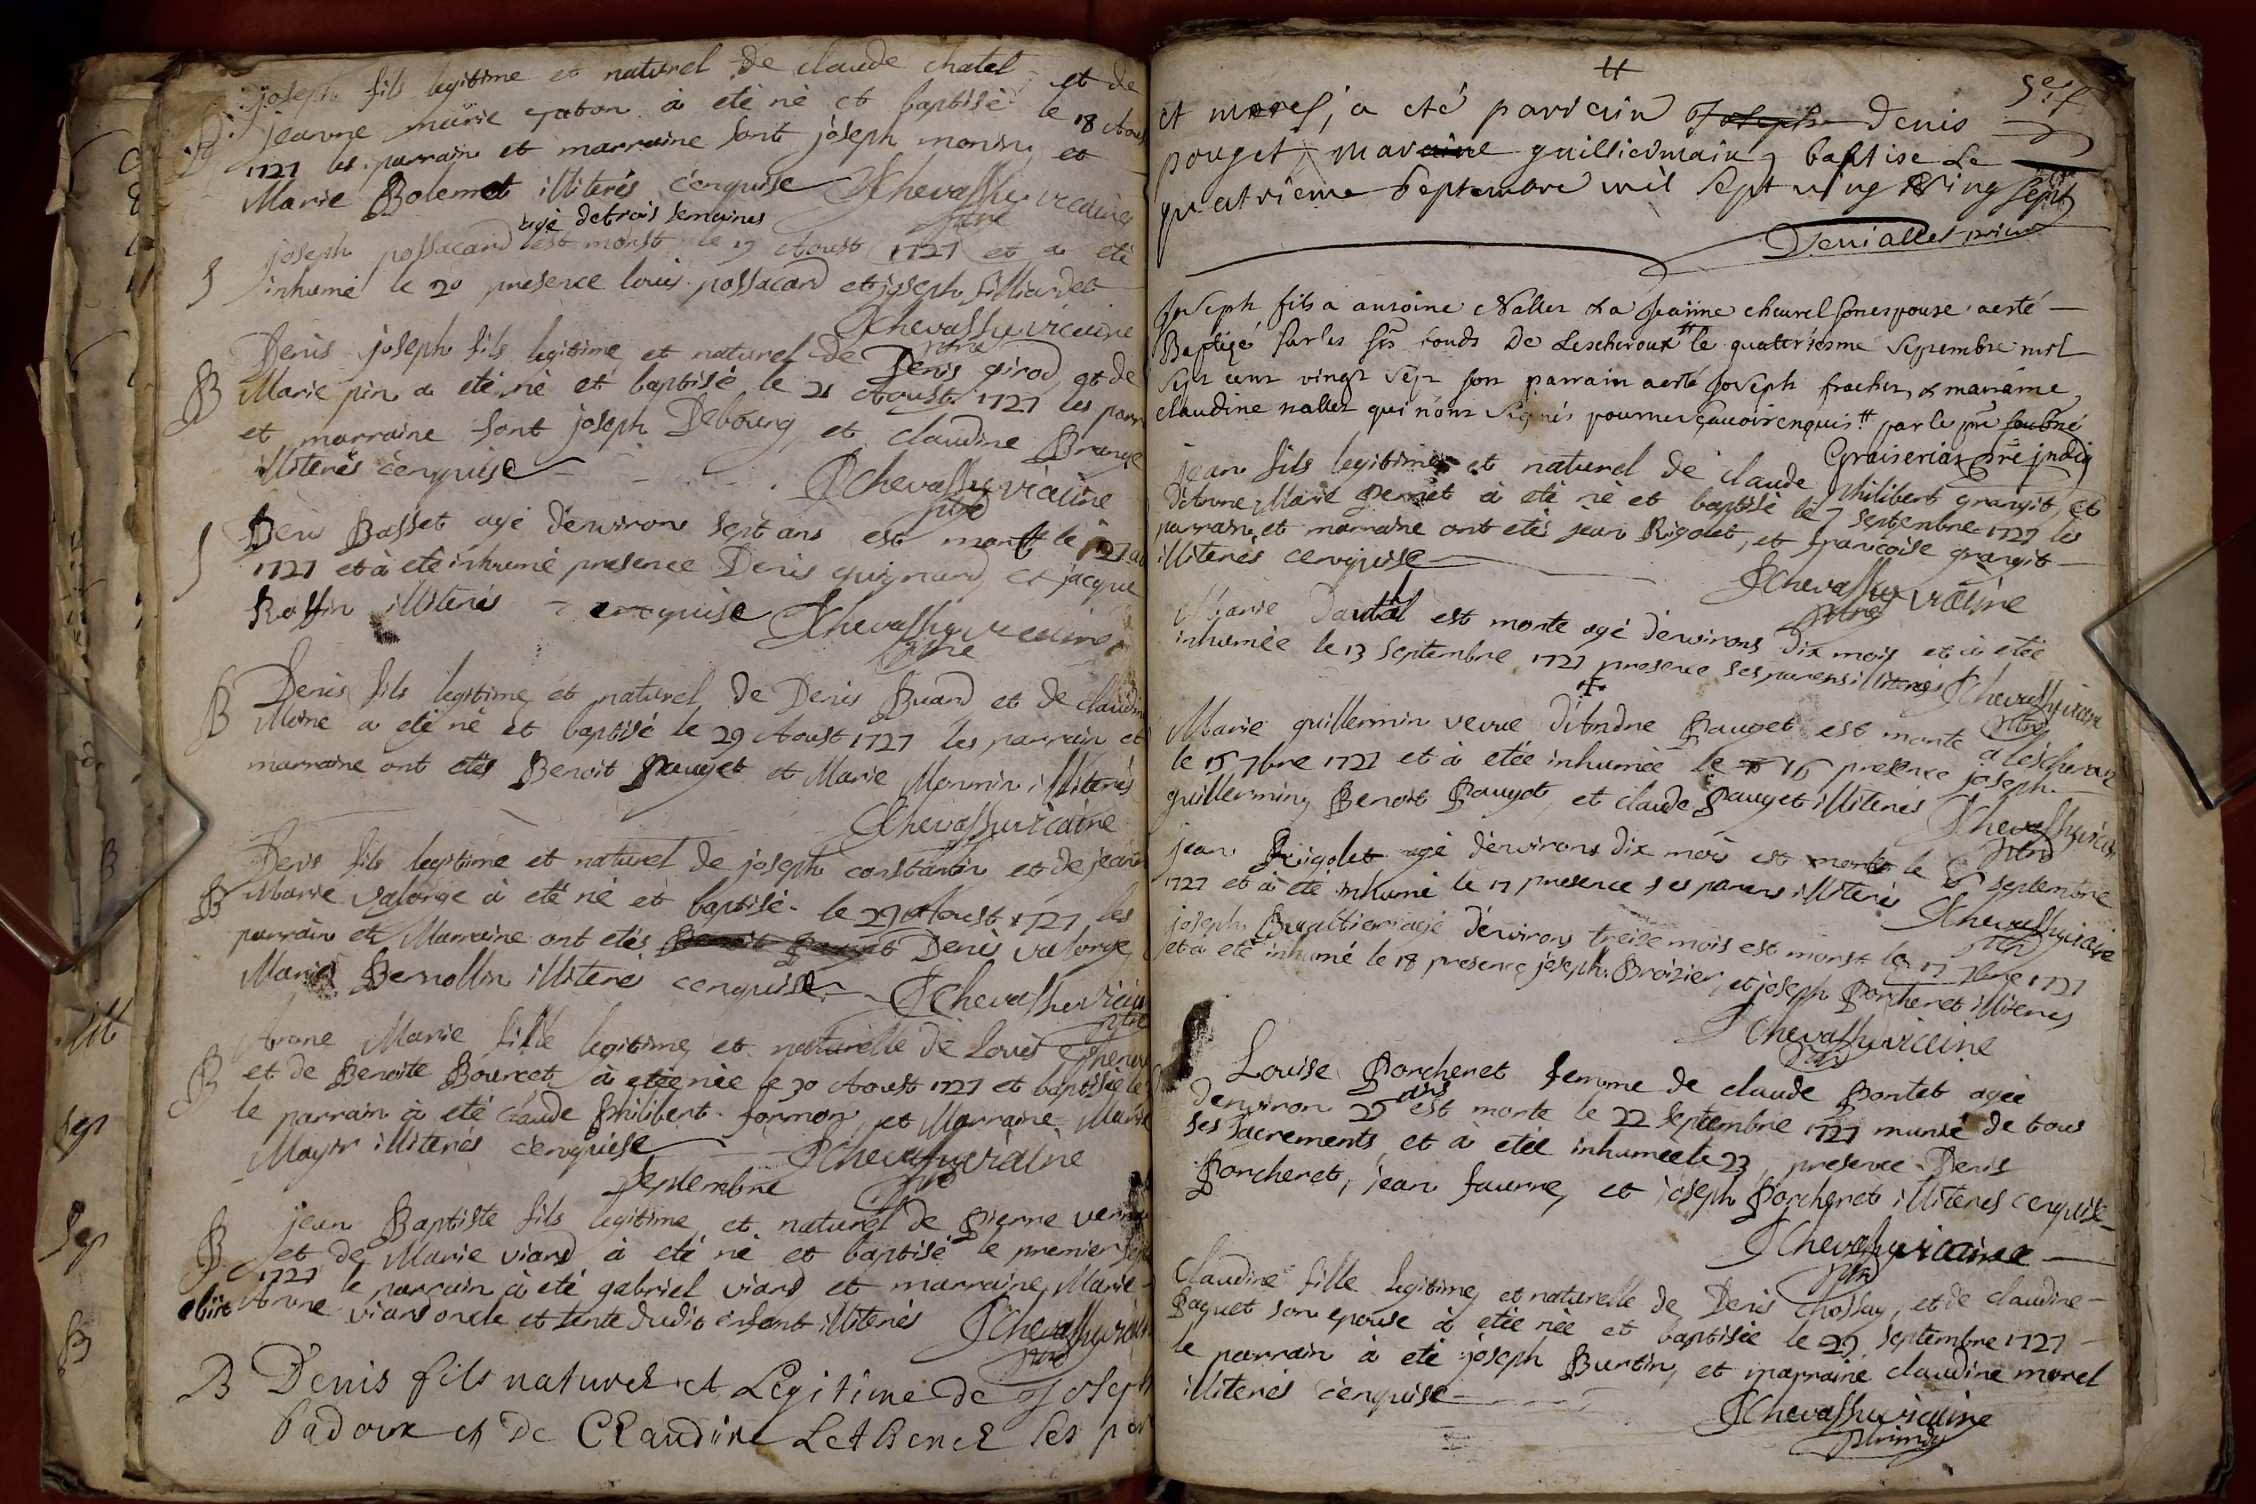 joseph fils legitime et naturel de claude chatel et de
B jeanne marie gaton à eté né et baptisé le 18 Aoust
1727 les parrain et marraine sont joseph monin et
Marie Bolemet illiterés enquise JChevassu vicaire
ptre
agé de trois semaines
S joseph possacard est morst le 19 Aoust 1727 et a eté
inhumé le 20 presence louis possacard et joseph filliardet
JChevassu vicaire
ptre
Denis joseph fils legitime et naturel de Denis girod et de
B Marie pin a eté né et baptisé le 21 Aoust 1727 les parr
et marraine sont joseph Debourg et claudine Brange
illiterés cenquise
JChevassu vicaire
ptre
S Basset agé d'environ sept ans est mort le
1727 et à eté inhumé presence Denis guignard et jacque
illiterés enquise JChevassu vicaire
ptre
B Denis fils legitime et naturel de Denis Buard et de claudine
Moine a eté né et baptisé le 29 Aoust 1727 les parrain et
marraine ont etés Benoit Pauget et Marie Monnin illiterés
JChevassu vicaire
Denis fils legitime et naturel de joseph constantin et de jeanne
B Marie valorge à eté né et baptisé le 29 Aoust 1727 les
parrain et Marraine ont etés Denis valorge
Marie illiterés cenquise JChevassu vicaire
ptre
Anne Marie fille legitime et naturelle de Louis
B et de Benoite Bourcet à etée née le 30 Aoust 1727 et baptisée le
le parrain à eté claude philibert formon et Marraine Marie
Mayor illiterés cenquise JChevassu vicaire
Septembre ptre
B jean Baptiste fils legitime et naturel de pierre
et de Marie viard à eté né et baptisé le premier sept
1727 le parrain à eté gabriel viard et marraine Marie
Anne viard oncle et tente dudit enfant illiterés JChevassu vicaire
ptre
B Denis fils naturel et Legitime de Joseph
badoux et De Claudine Lethenet les par
et mares, a eté parrain Joseph Denis
pouget, maraine guilliermain, baptise Le
quatrieme septembre mil sept ving ving sept
Devialles prieur
Joseph fils a antoine Nallet & a Jeanne cheurel son espouse a esté
Baptizé sur les sts fonds De Lescheroux # le quattriesme septembre mil
sept cent vingt sept son parrain a esté Joseph fracher, & maraine
claudine nallet qui n'ont signés pour ne sçavoir enquis # par le ptre soubné
Graiseriaz ptre indig
jean fils legitime et naturel de claude philibert grangit et
d'Anne Marie Perret à eté né et baptisé le 7 septembre 1727 les
parrain et marraine ont etés jean Rigolet, et francoise grangit
illiterés cenquise JChevassu vicaire
ptre
Marie est morte agé d'environs dix mois et à etée
inhumée le 13 septembre 1727 presence ses parens illiterés JChevassu vicaire
ptre
Marie guillermin veuve d'Andre Pauget est morte a lescheroux
le 15 7bre 1727 et à etée inhumée le 16 presence joseph
guillermin, Benoit Pauget et claude Pauget illiterés JChevassu vicaire
ptre
jean Rigolet agé d'environs dix mois est morts le 16 septembre
1727 et à eté inhumé le 17 presence ses parens illiterés JChevassu vicaire
ptre
joseph agé d'environs treise mois est morst le 17 7bre 1727
et à eté inhumé le 18 presence joseph Broisier, et joseph Porcheret illiterés
JChevassu vicaire
ptre
Louise Porcheret femme de claude Pontet agée
d'environ 25 ans est morte le 22 septembre 1727 munie de tous
ses sacrements et à etée inhumée le 23, presence Denis
Porcheret, jean faurre, et joseph Porcheret illiterés cenquise
JChevassu vicaire
ptre
Claudine fille legitime et naturelle de Denis chossay, et de claudine
Paquet son epouse à etée née et baptisée le 29 septembre 1727
le parrain à eté joseph Burtin, et marraine claudine morel
illiterés cenquise
JChevassu vicaire